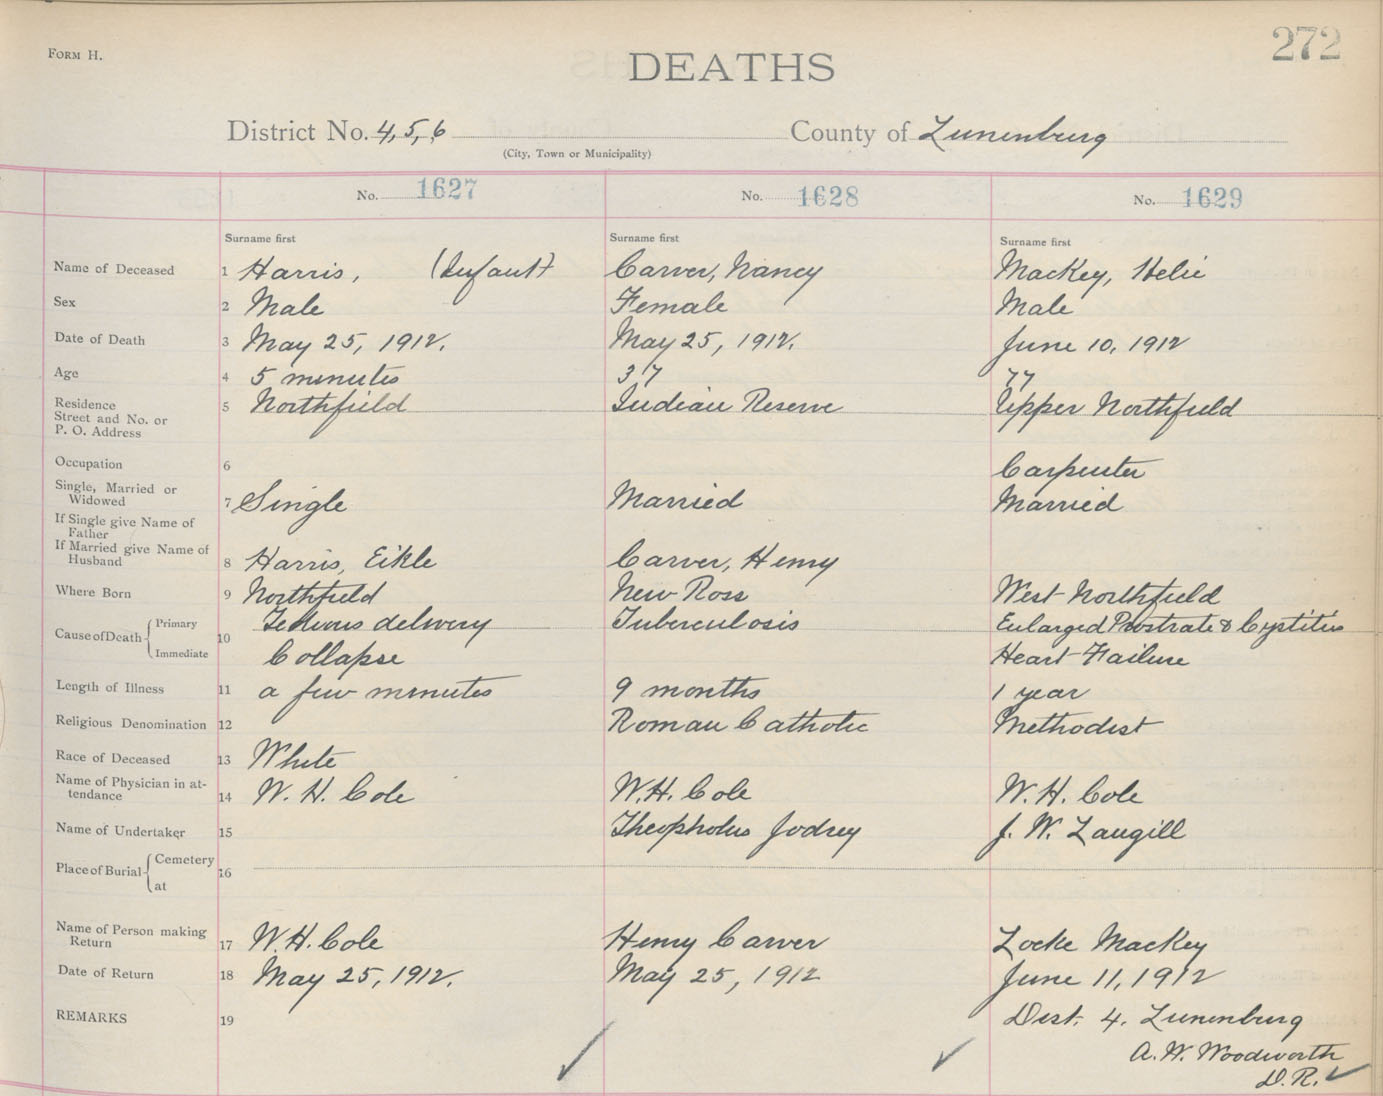 272
FORM H.
DEATHS
District No. 4, 5, 6 County of Lunenburg
(City, Town or Municipality)
No. 1627 No. 1628 No. 1629
Surname first Surname first Surname first
Name of Deceased 1 Harris, (Infant) Carver, Nancy MacKey, Helie
Sex 2 Male Female Male
Date of Death 3 May 25, 1912. May 25, 1912. June 10, 1912
Age 4 5 minutes 37 77
Residence 5 Northfield Indian Reserve Upper Northfield
Street and No. or
P. O. Address
Occupation 6 Carpenter
Single, Married or
Widowed 7 Single Married Married
If Single give Name of
Father
If Married give Name of
Husband 8 Harris, Eikle Carver, Henry
Where Born 9 Northfield New Ross West Northfield
Cause of Death Primary 10 Tedious delivery Tuberculosis Enlarged Prostrate & Cystitis
Immediate Collapse Heart Failure
Length of Illness 11 a few minutes 9 months 1 year
Religious Denomination 12 Roman Catholic Methodist
Race of Deceased 13 White
Name of Physician in at-
tendance 14 W. H. Cole W. H. Cole W. H. Cole
Name of Undertaker 15 Theopholus Jodrey J. W. Langill
Place of Burial Cemetery 16
at
Name of Person making
Return 17 W. H. Cole Henry Carver Locke MacKey
Date of Return 18 May 25, 1912. May 25, 1912 June 11, 1912
REMARKS 19 Dist. 4. Lunenburg
A. W. Woodworth
D. R.